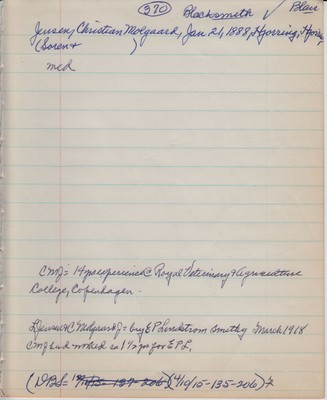 (370) Blacksmith ✓ Blair
Jensen, Christian Molgaard, Jan 21, 1888, Hjorring, Hjorring
(Soren + )
med
CMJ = 14 yrs experience @ Royal Veterinary & Agriculture
College, Copenhagen.
LJensen & C Molgaard J = buy E P Lundstrom Smithy March 1918
CMJ had worked ca 1 1/2 yrs for E P L.
(DBS = 4/10/15-135-206) 7